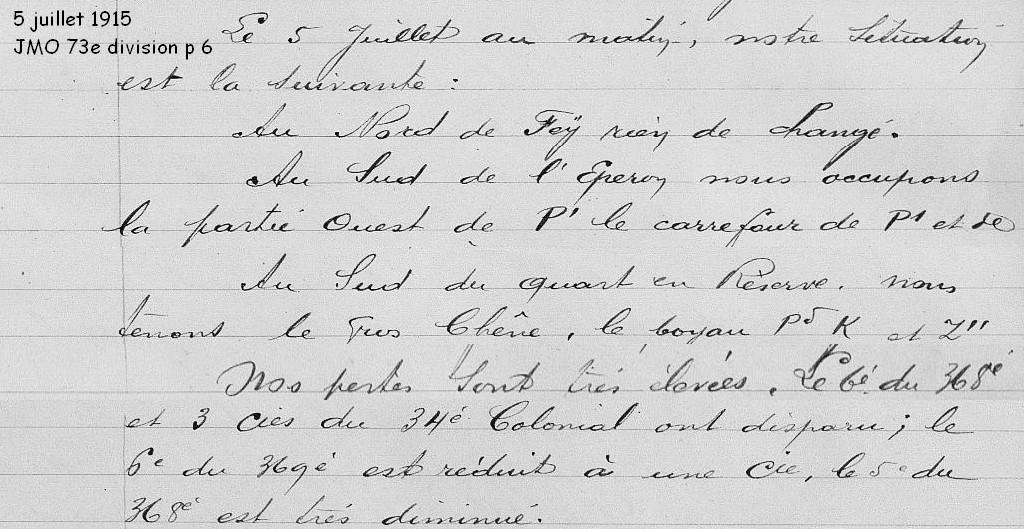 5 juillet 1915
JMO 73e division p 6
Le 5 Juillet au matin, notre situation
est la suivante :
Au Nord de Feÿ rien de changé.
Au Sud de l'Eperon nous occupons
la partie Ouest de P' le carrefour de P' et de
Au Sud du quart en Réserve. nous
tenons le Gros Chêne, le boyau P5 K et Z"
Nos pertes sont très élevées. Le 6e du 368e
et 3 cies du 34e Colonial ont disparu ; le
6e du 369e est réduit à une Cie, le 5e du
368e est très diminué.